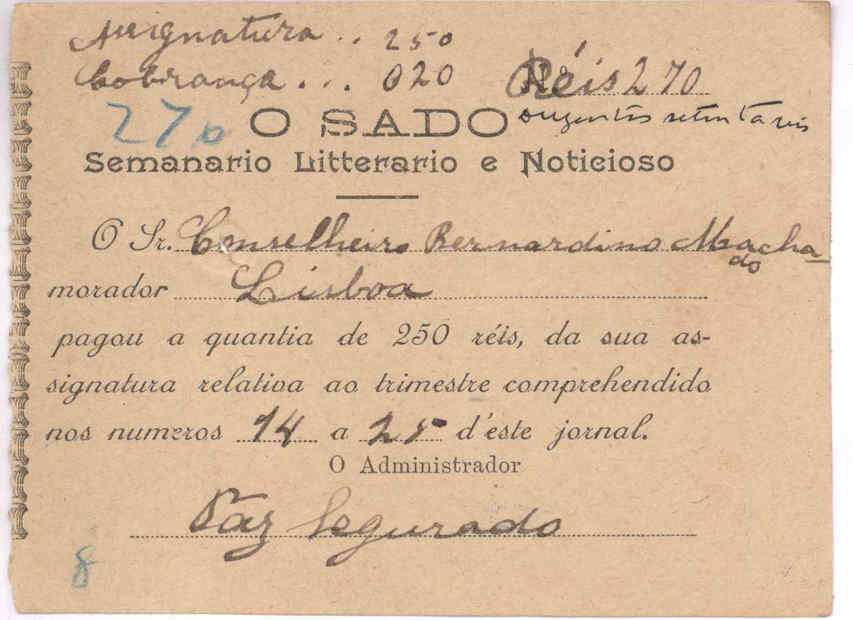 Assignatura .. 250
Cobrança ... 020 Réis 270
270 O SADO duzentos setenta reis
Semanario Litterario e Noticioso
O Sr. Conselheiro Bernardino Machado
morador Lisboa
pagou a quantia de 250 réis, da sua as-
signatura relativa ao trimestre comprehendido
nos numeros 14 a 25 d'éste jornal.
O Administrador
Paz Segurado
8